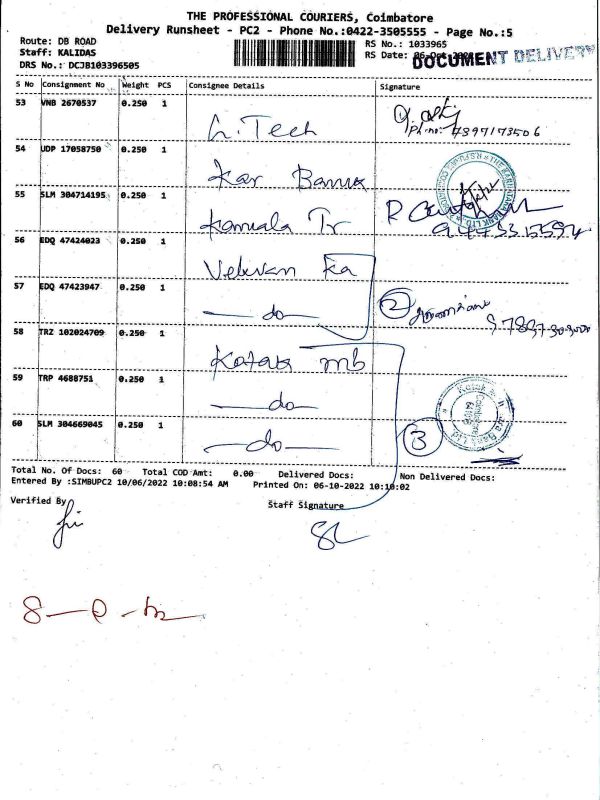 THE PROFESSIONAL COURIERS, Coimbatore
Delivery Runsheet - PC2 - Phone No.:0422-3505555 - Page No.:5
Route: DB ROAD
RS No.: 1033965
Staff: KALIDAS
RS Date: 06-Oct-2022
DOCUMENT DELIVERY
DRS No.: DCJB103396505
S No Consignment No Weight PCS Consignee Details Signature
53 VNB 2670537 0.250 1
L. Tech
Ph.no: 7397173506
54 UDP 17058750 0.250 1
Kar Bank
55 SLM 304714195 0.250 1
Kamala Tr
56 EDQ 47424023 0.250 1
57 EDQ 47423947 0.250 1
do
2
58 TRZ 102024709 0.250 1
Kotak mb
59 TRP 4688751 0.250 1
do
60 SLM 304669045 0.250 1
do
3
Total No. Of Docs: 60 Total COD Amt: 0.00 Delivered Docs: Non Delivered Docs:
Entered By :SIMBUPC2 10/06/2022 10:08:54 AM Printed On: 06-10-2022 10:10:02
Verified By
Staff Signature